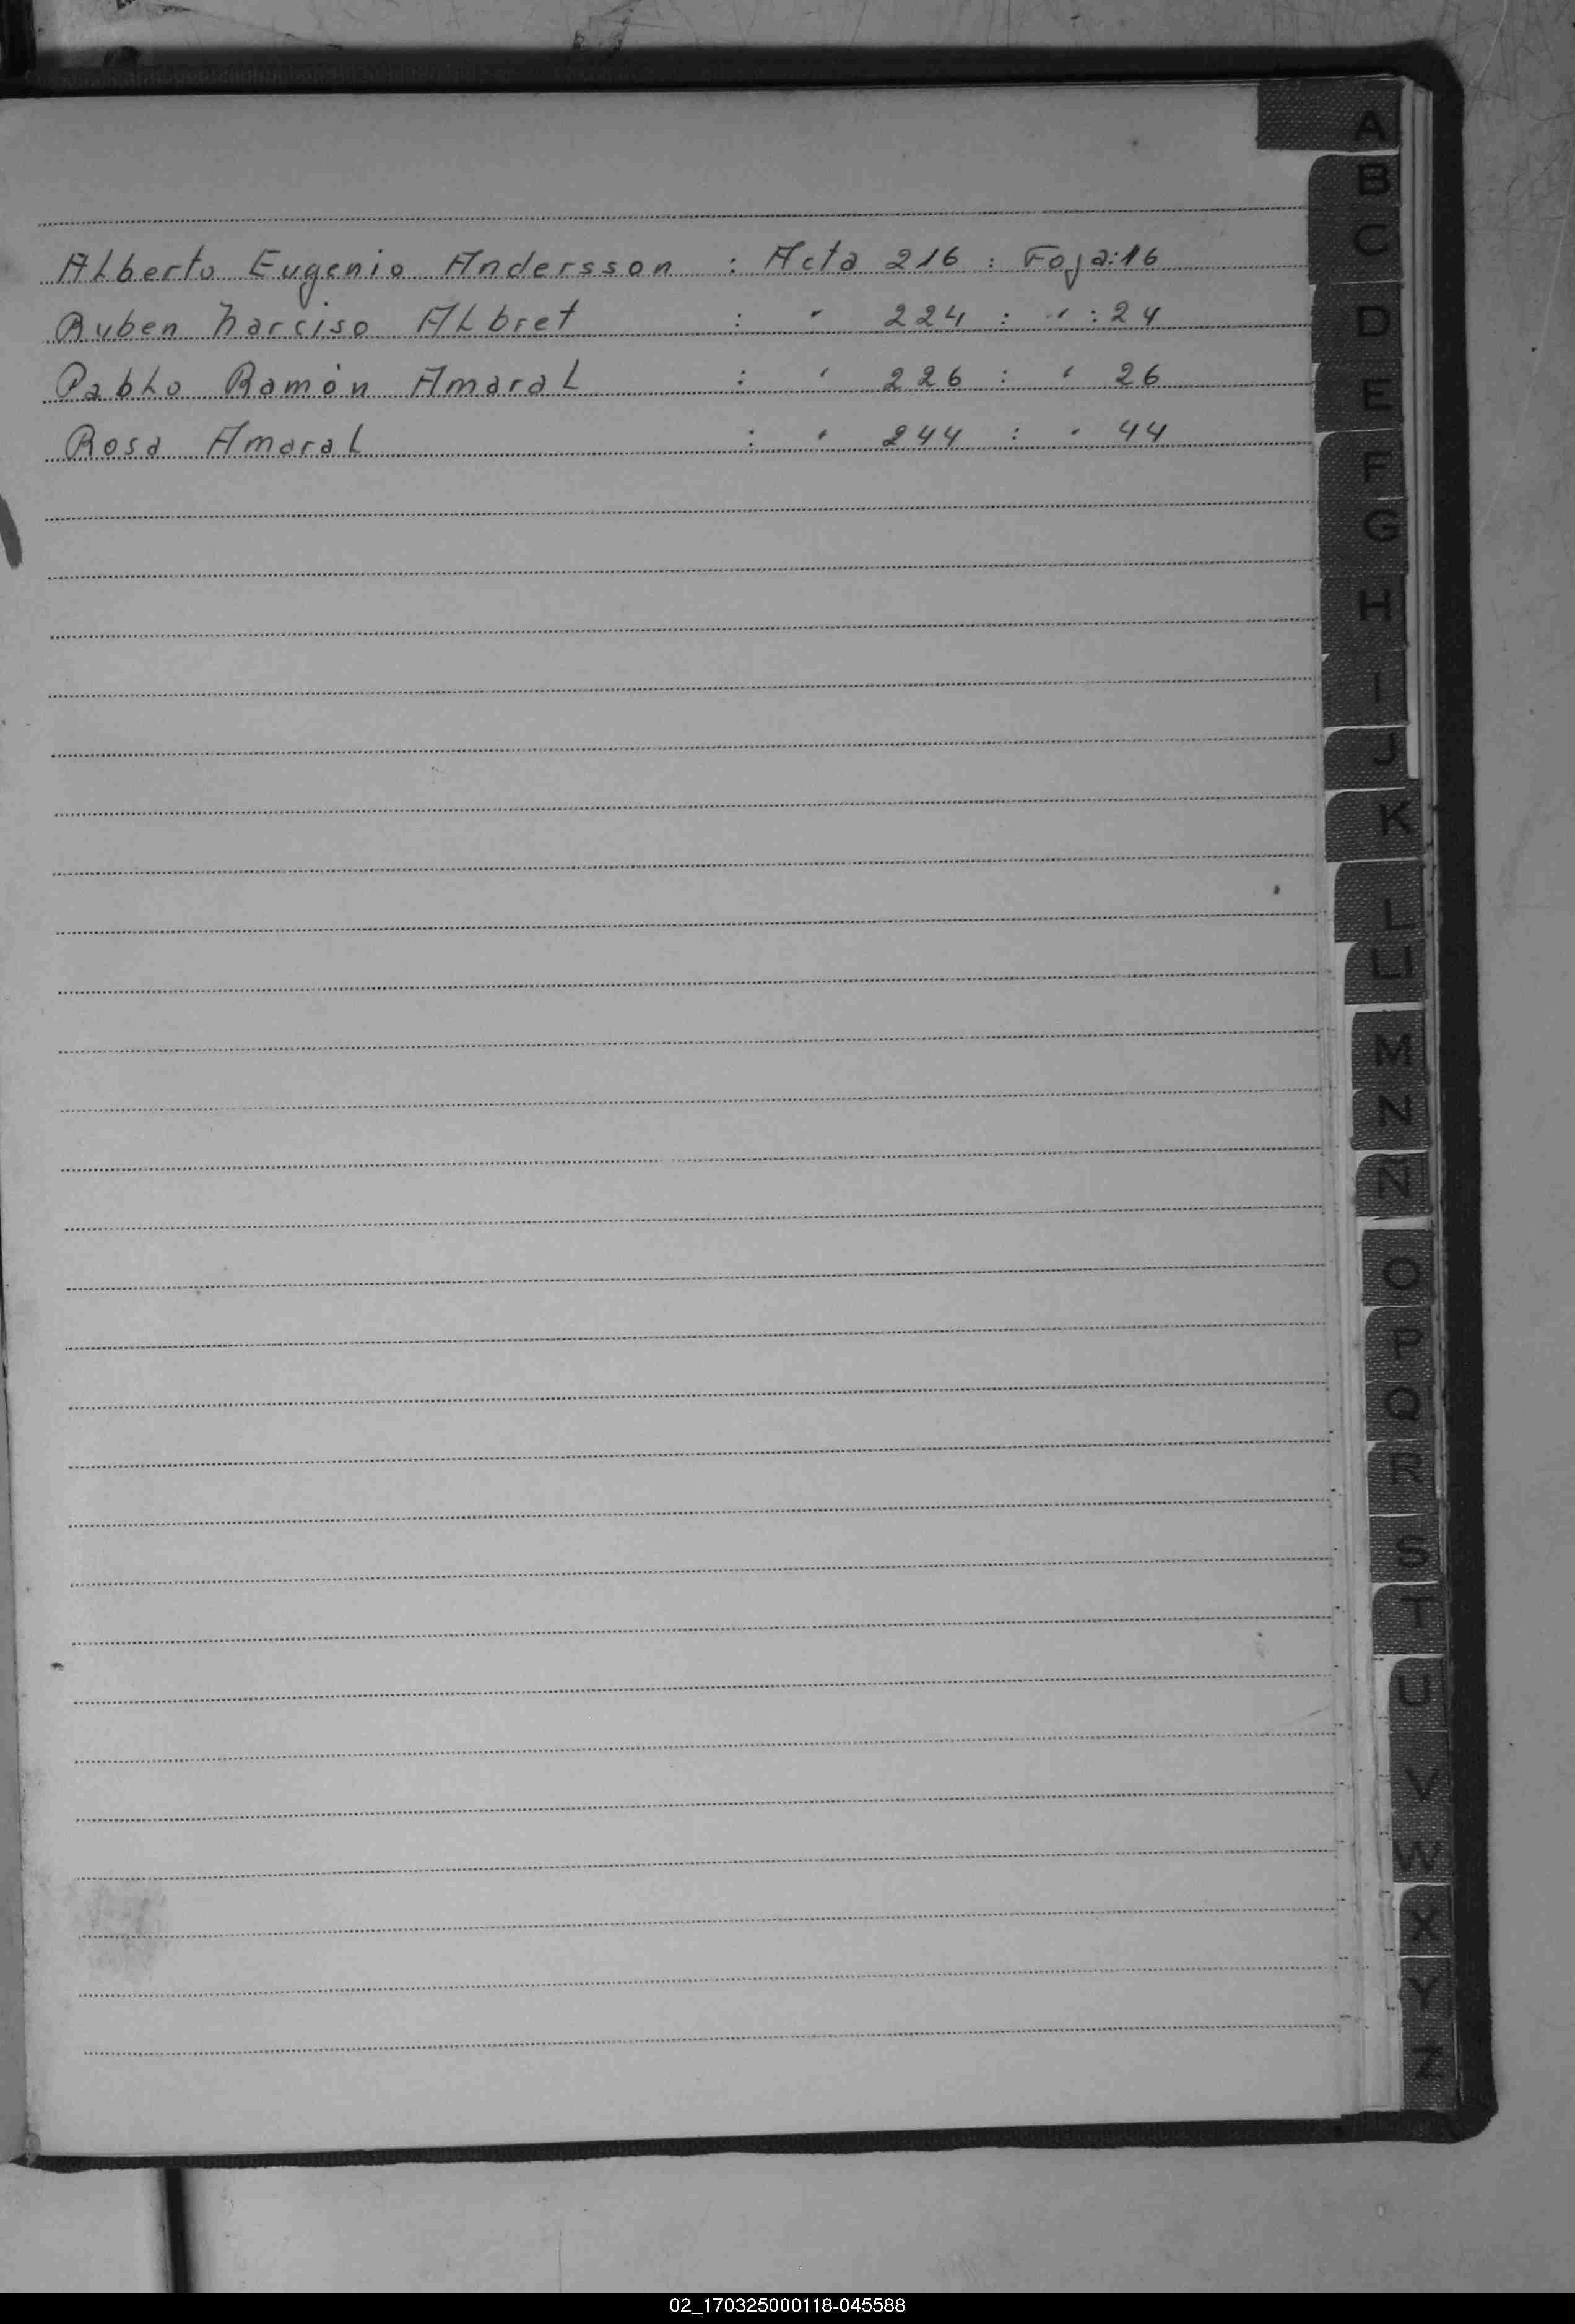 A
B
C
Alberto Eugenio Andersson : Acta 216 : Foja:16
Ruben Narciso Albret : " 224 : " : 24
Pablo Ramón Amaral : " 226 : " 26
Rosa Amaral : " 244 : " 44
D
E
F
G
H
I
J
K
L
LL
M
N
Ñ
O
P
Q
R
S
T
U
V
W
X
Y
Z
02_170325000118-045588